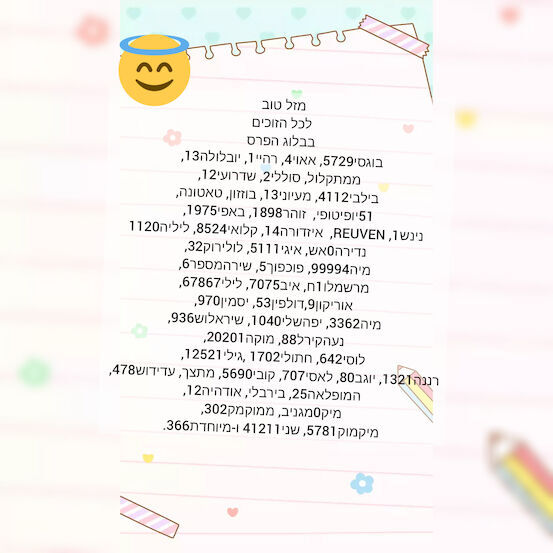 מזל טוב
לכל הזוכים
בבלוג הפרס
בוגסי5729, אאוי4, רהיי1, יובלולה13,
ממתקלול, סוללי2, שדרועי12,
בילבי4112, מעיוני13, בוזזון, טאטונה,
51יופיטופי, זוהר1898, באפי1975,
נינש1, REUVEN, איזדורה14, קלואי8524, ליליה1120
נדירה0אש, איגי5111, לולירוק32,
מיה99994, פוכפוך5, שירהמספר6,
מרשמלו1ח, איב7075, לילי67867,
אוריקון9,דולפין53, יסמין970,
מיה3362, יפהשלי1040, שיראלוש936,
נעהקירל88, מוקה20201,
לוסי642, חתולי1702, גילי12521,
רננה1321, יוגב80, לאסי707, קובי5690, מתצך, עדידוש478,
המופלאה25, בירבלי, אודהיה12,
מיק0מגניב, ממוקמק302,
מיקמוק5781, שני41211 ו-מיוחדת366.